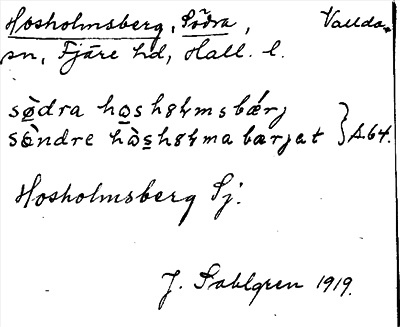 Hosholmsberg, Södra, Vallda
sn, Fjäre hd, Hall. l.
sø̀dra họshɵłmsbærj
sø̀ndre hòshɵłma bærjat } A.64.
Hosholmsberg Sj.
J. Sahlgren 1919.